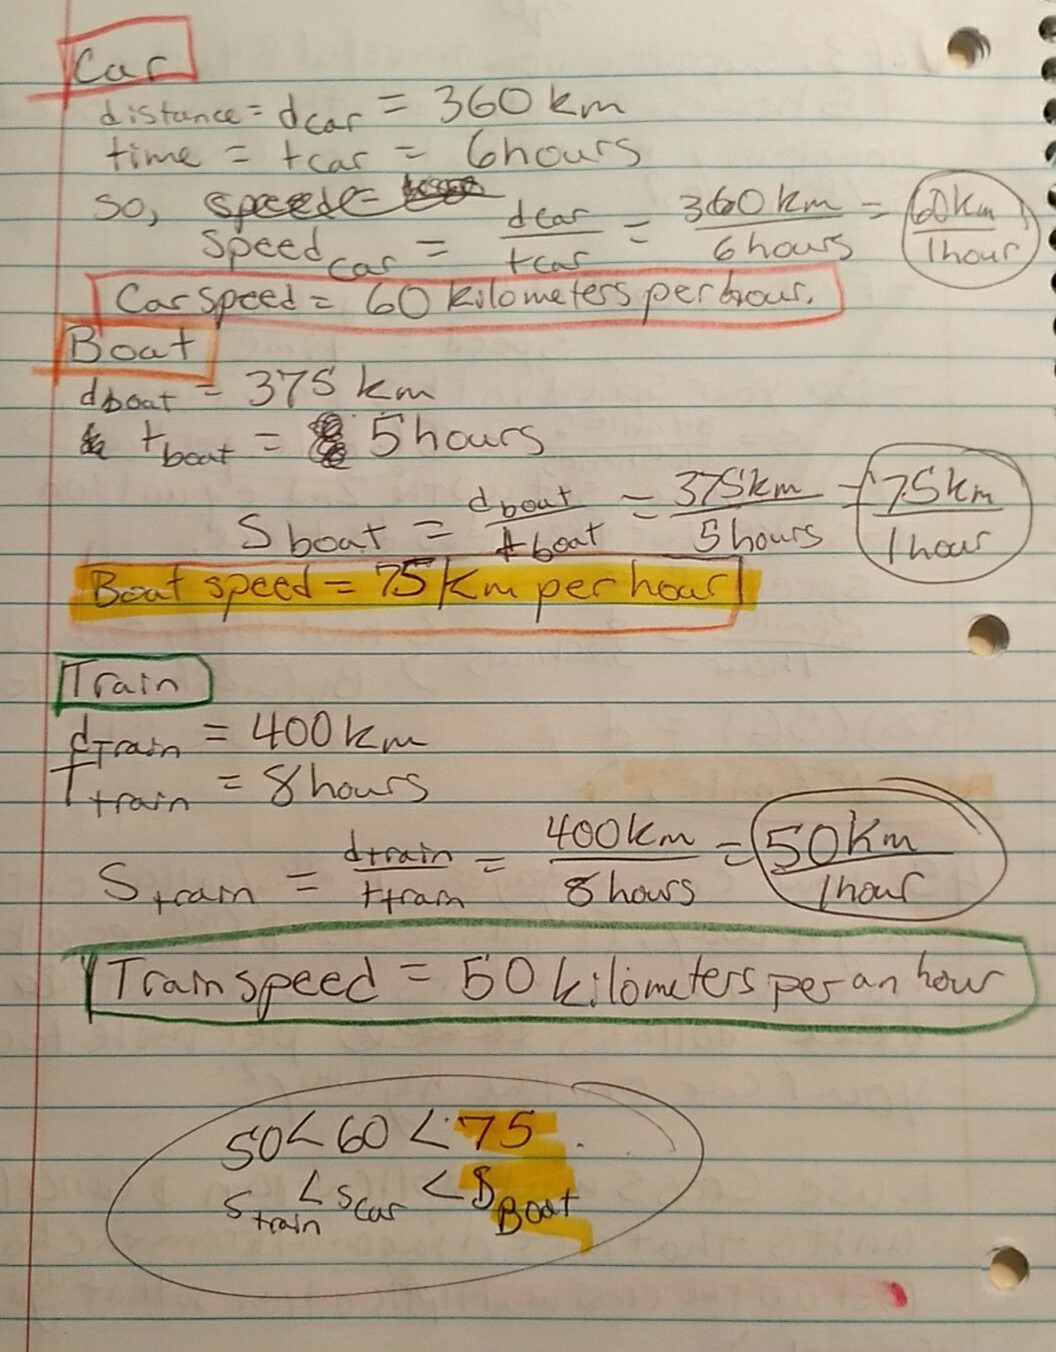 Car
distance = dcar = 360 km
time = tcar = 6 hours
so, speed =
speed car = dcar/tcar = 360 km/6 hours = 60 km/1 hour
Car speed = 60 kilometers per hour.
Boat
dboat = 375 km
tboat = 5 hours
Sboat = dboat/tboat = 375 km/5 hours = 75 km/1 hour
Boat speed = 75 km per hour
Train
dTrain = 400 km
Ttrain = 8 hours
Strain = dtrain/ttrain = 400 km/8 hours = 50 Km/1 hour
Train speed = 50 kilometers per an hour
50 < 60 < 75
strain < scar < sBoat